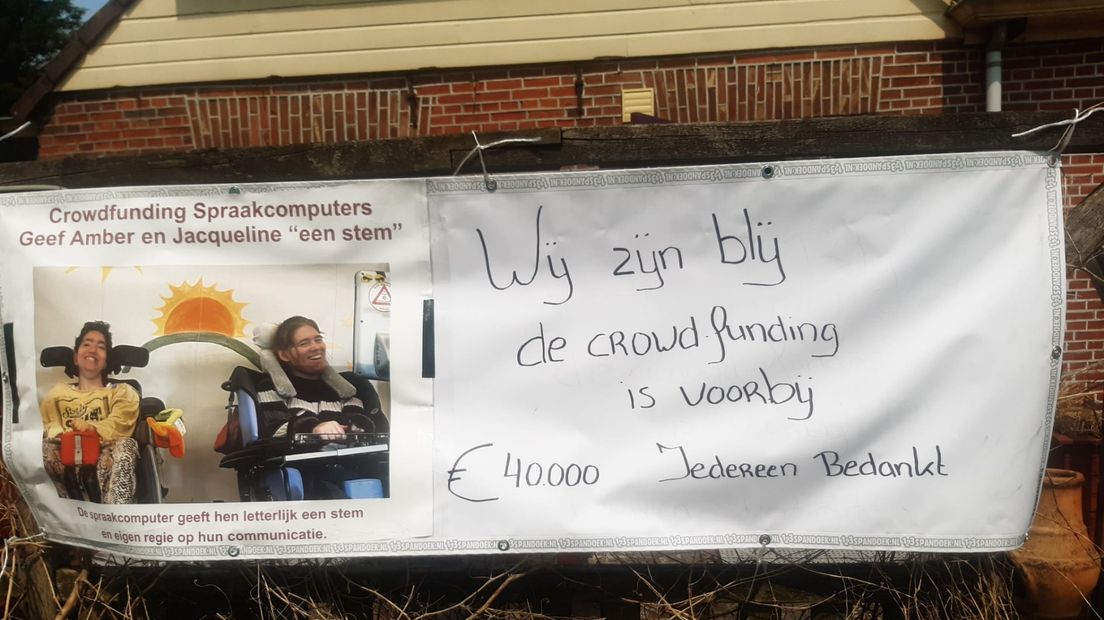 Crowdfunding Spraakcomputers
Geef Amber en Jacqueline “een stem”
De spraakcomputer geeft hen letterlijk een stem
en eigen regie op hun communicatie.
Wij zijn blij
de crowdfunding
is voorbij
€ 40.000 Iedereen Bedankt
123SPANDOEK.NL